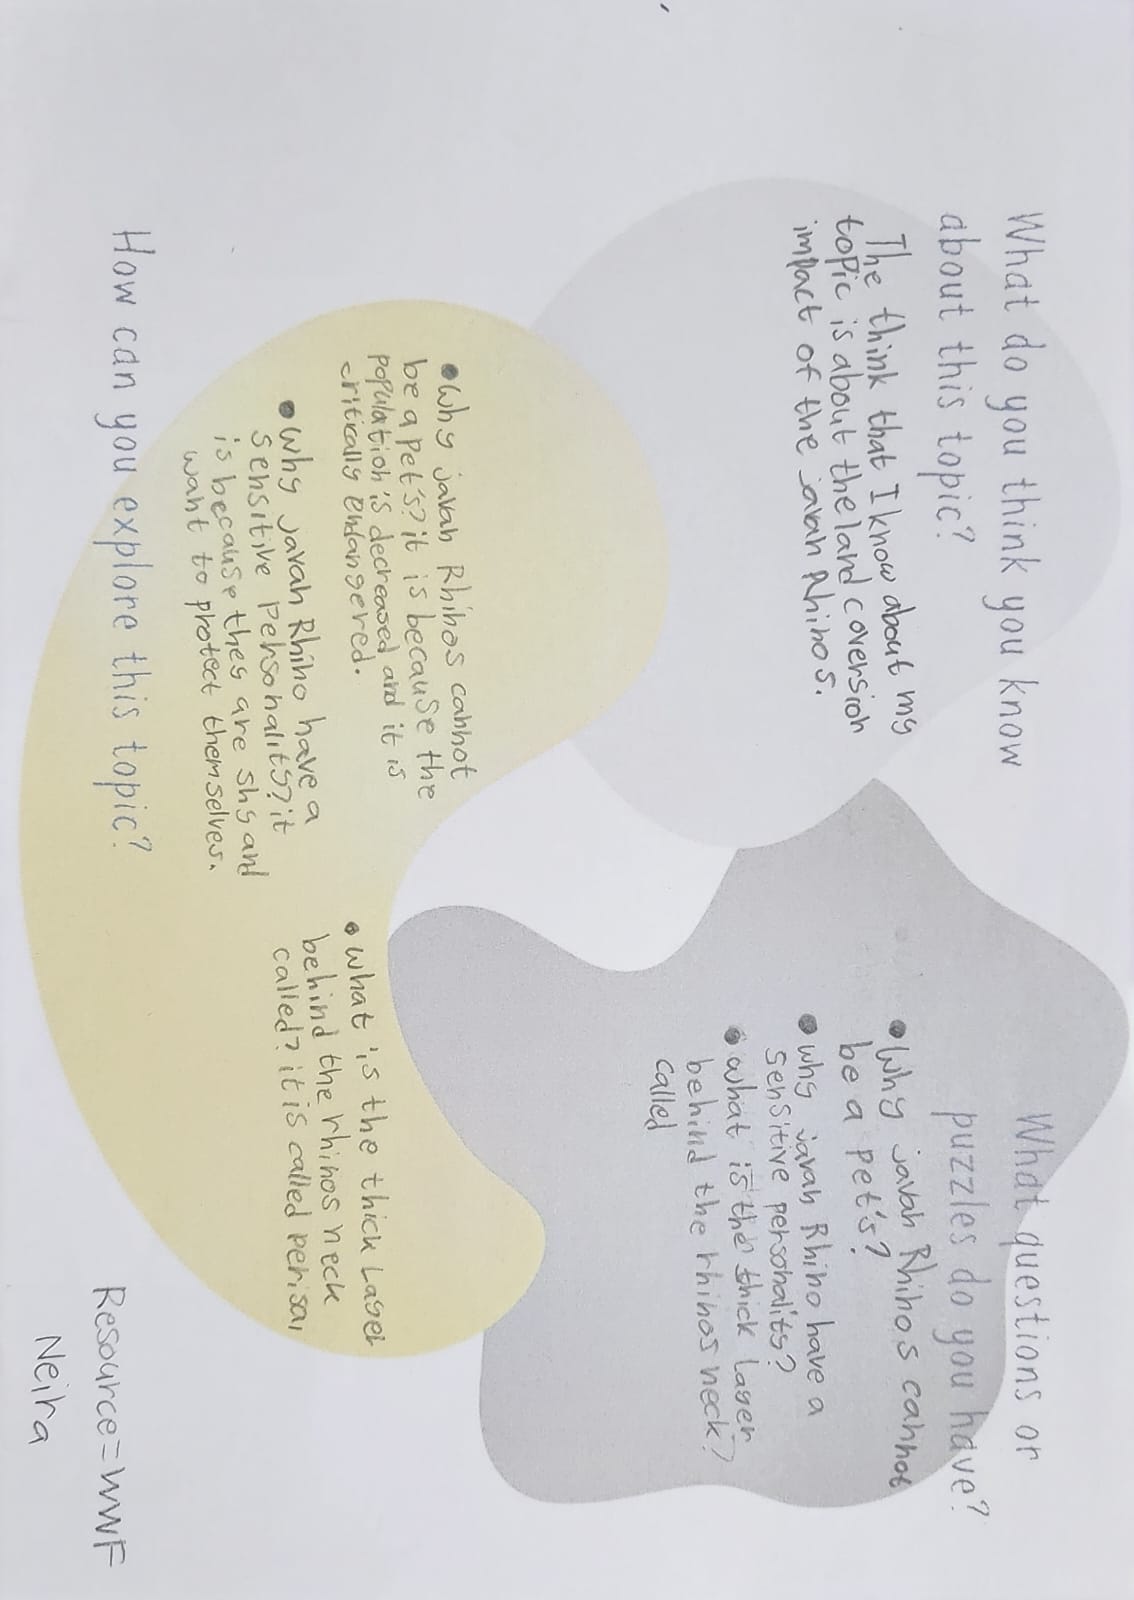 What do you think you know
about this topic?
The think that I know about my
topic is about the land coversion
impact of the javan Rhinos.
What questions or
puzzles do you have?
• Why javan Rhinos cannot
be a pet's?
• why javan Rhino have a
sensitive personality?
• what is the thick layer
behind the rhinos neck?
called
• Why javan Rhinos cannot
be a pet's? it is because the
population is decreased and it is
critically endangered.
• Why javan Rhino have a
sensitive personality? it
is because they are shy and
want to protect themselves.
• what is the thick layer
behind the rhinos neck
called? it is called perisai
How can you explore this topic?
Resource=WWF
Neira